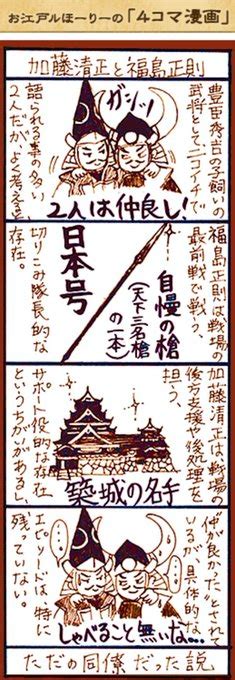 お江戸ルほーりーの「4コマ漫画」
加藤清正と福島正則
豊臣秀吉の子飼いの
武将として、ニコイチで
ガシッ!
語られる事の多い
2人だが、よく考えると
2人は仲良し!
福島正則は戦場の
最前戦で戦う、
自慢の槍
(天下三名槍
の一本)
日本号
切りこみ隊長的な
存在。
加藤清正は、戦場の
後方支援や後処理を
担う、
サポート役的な存在
というちがいがあるし、
築城の名手
“仲が良かった”とされて
いるが、具体的な
エピソードは、特に
残っていない。
しゃべること無いな…
ただの同僚だった説